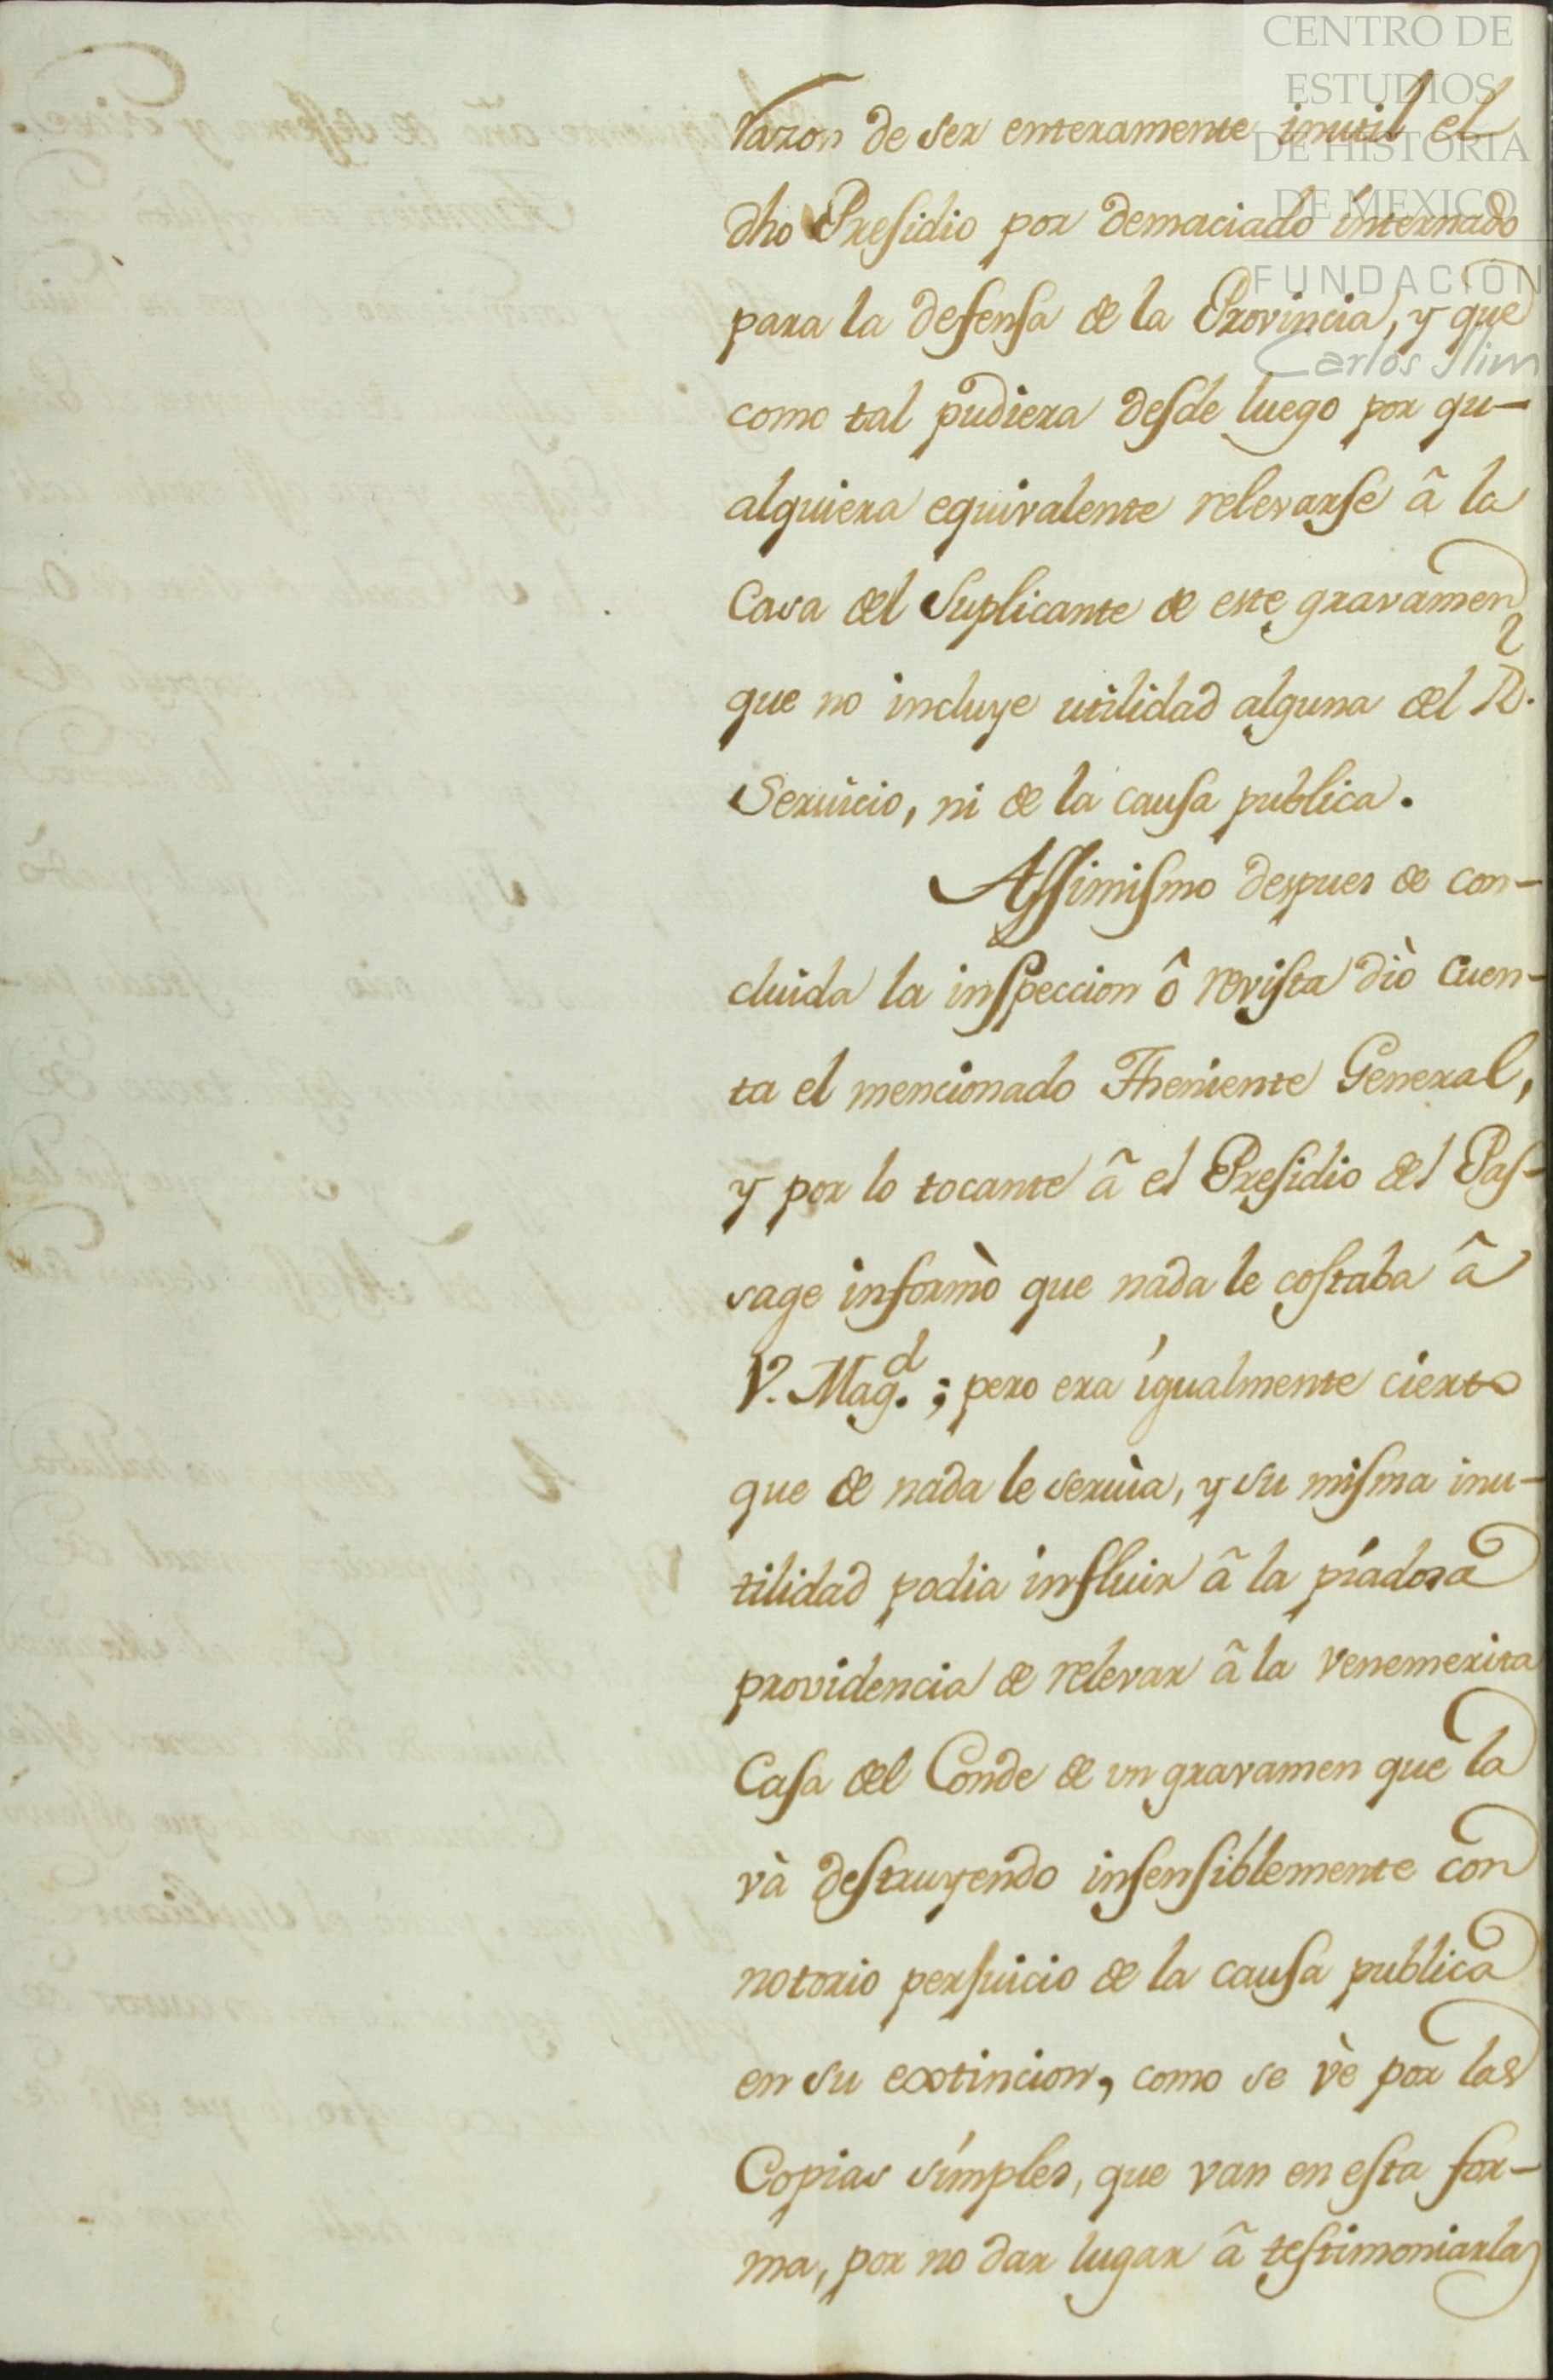 CENTRO DE
ESTUDIOS
DE HISTORIA
DE MEXICO
FUNDACIÓN
Carlos Slim
razon de ser enteramente inutil el
dho Presidio por demaciado internado
para la defensa de la Provincia, y que
como tal pudiera desde luego por qu-
alquiera equivalente relevarse â la
Casa del Suplicante de este gravamen
que no incluye utilidad alguna del Rl.
Servicio, ni de la causa publica.
Assimismo despues de con-
cluida la inspeccion ô revista diò cuen-
ta el mencionado Theniente General,
y por lo tocante â el Presidio del Pas-
sage informò que nada le costaba â
V. Magd.; pero era igualmente cierto
que de nada le servia, y su misma inu-
tilidad podia influir â la piadosa
providencia de relevar â la venemerita
Casa del Conde de un gravamen que la
và destruyendo insensiblemente con
notorio perjuicio de la causa publica
en su extincion, como se vè por las
Copias simples, que van en esta for-
ma, por no dar lugar â testimoniarlas